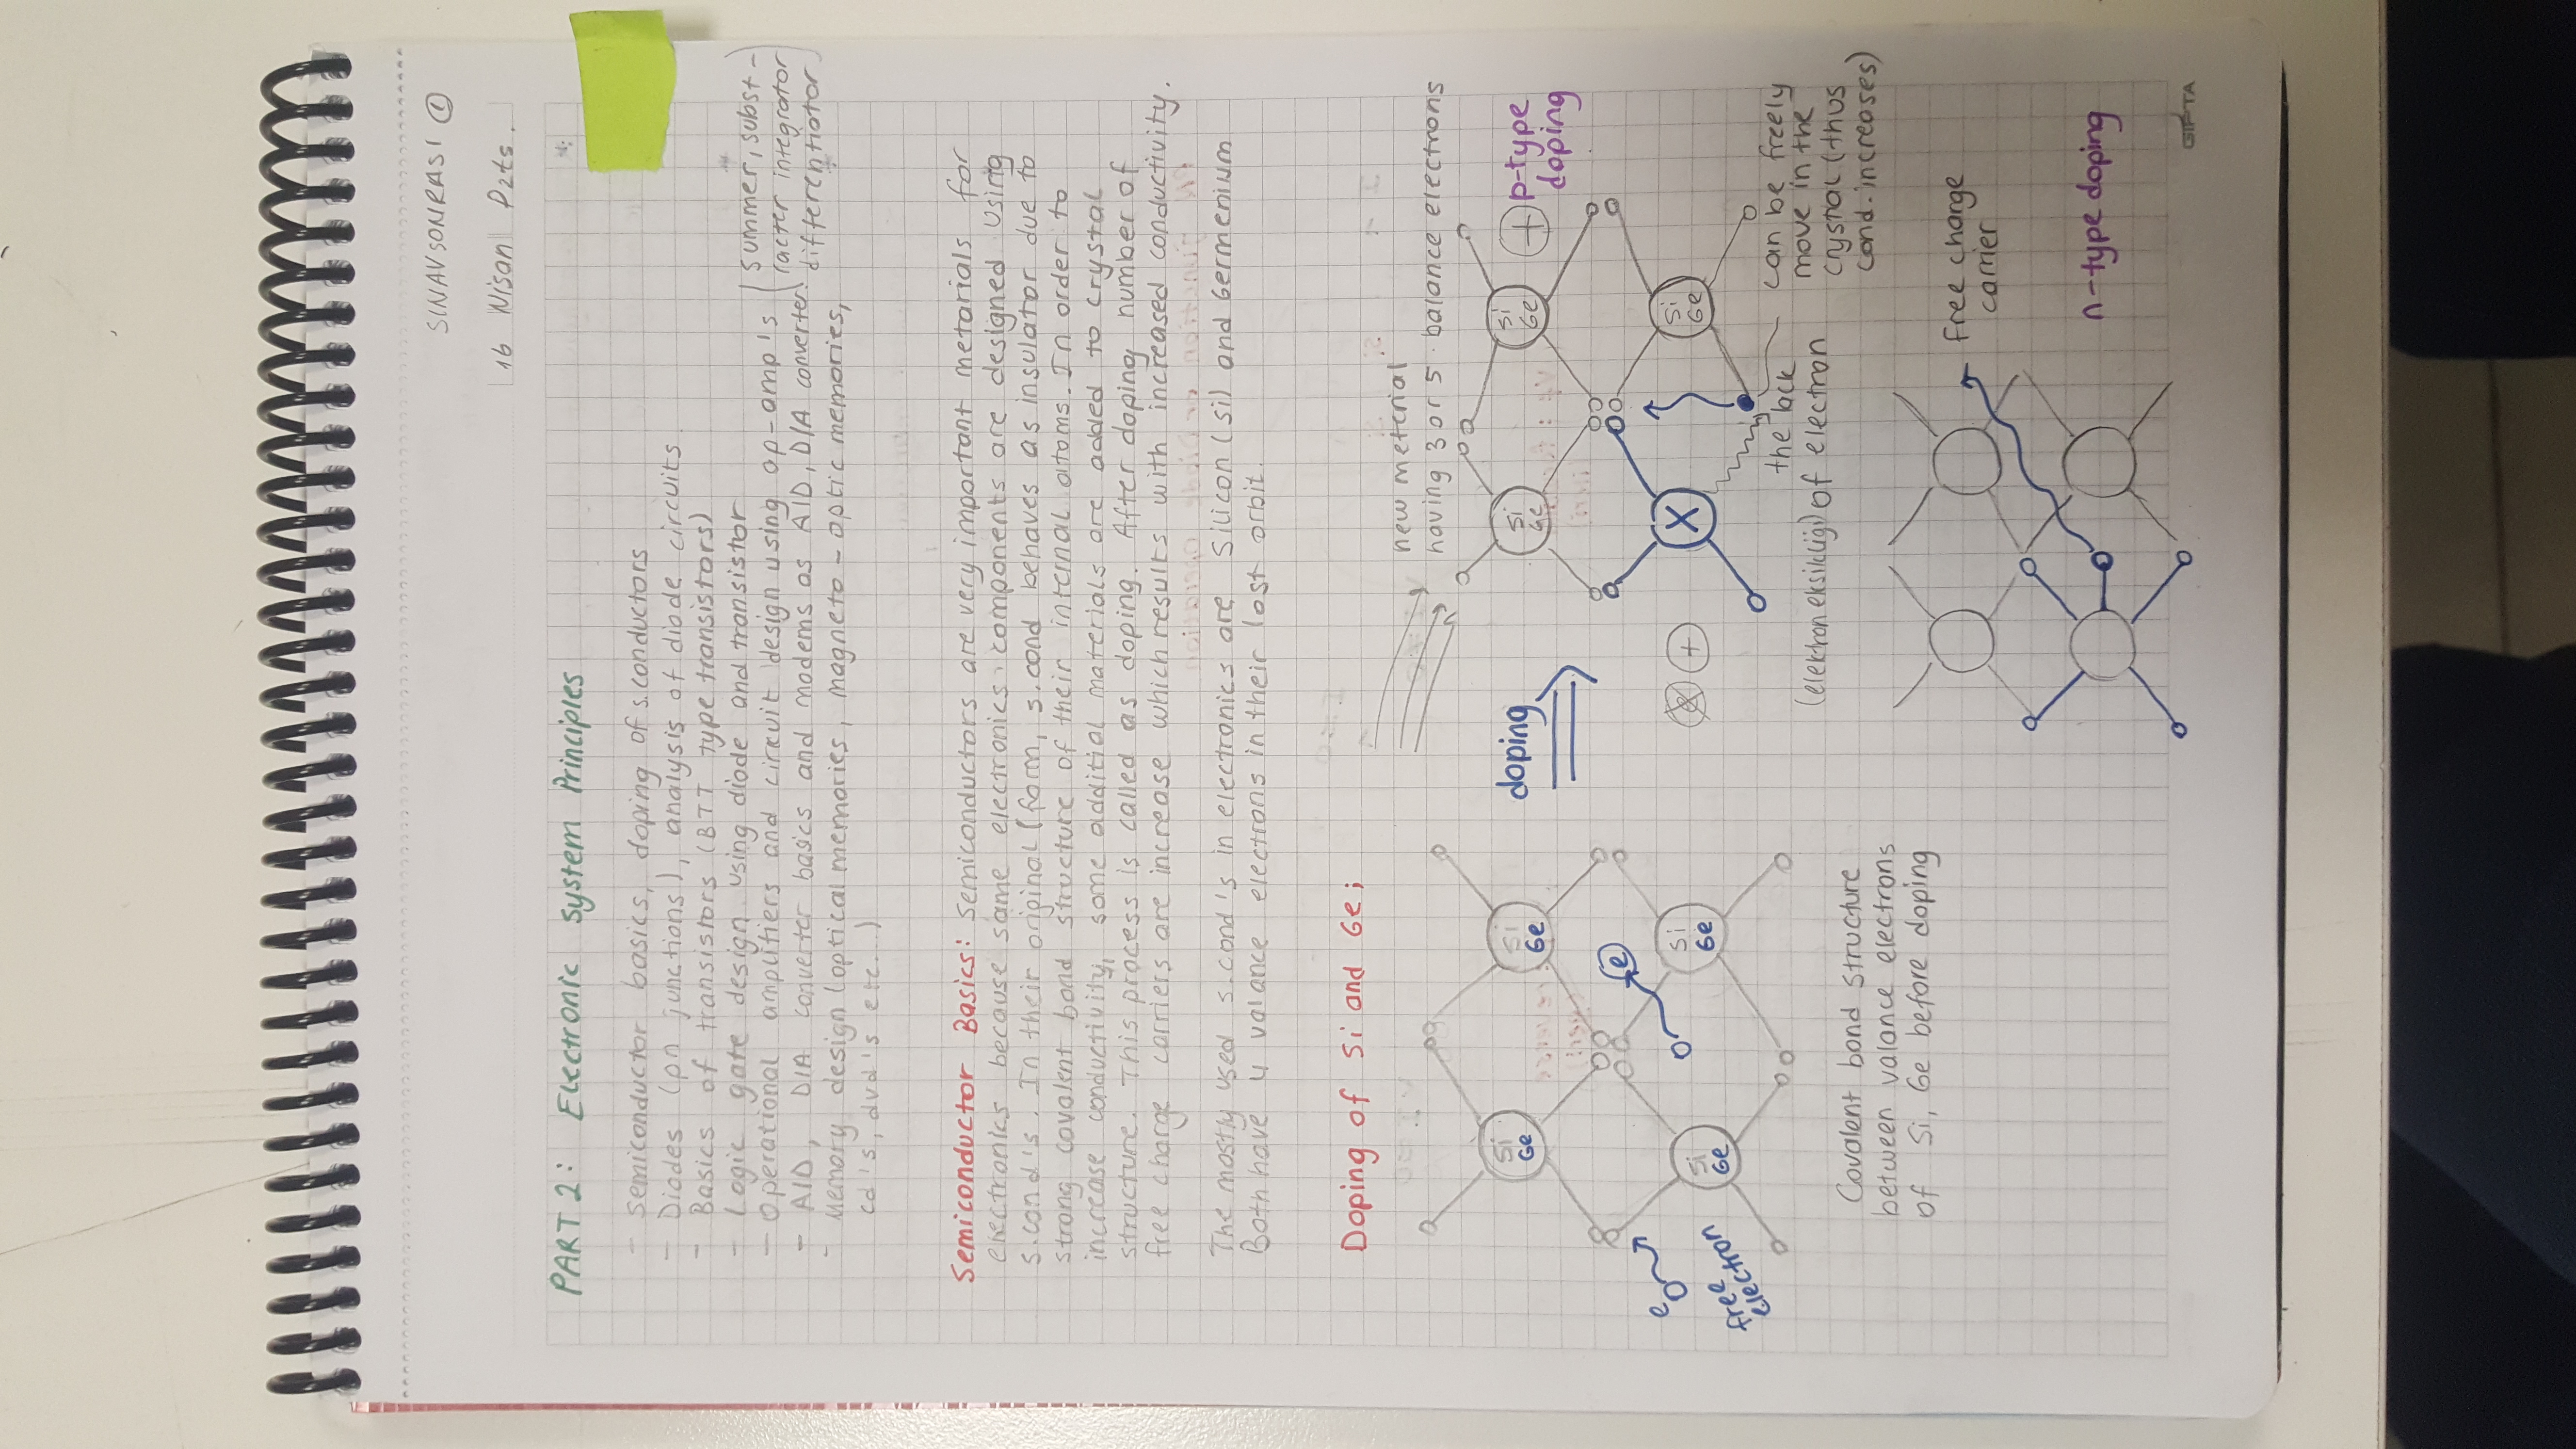 SINAVSONRASI ①
16 Nisan Pzts.
PART 2: Electronic System Principles
- Semiconductor basics, doping of s.conductors
- Diodes (pn junctions), analysis of diode circuits
- Basics of transistors (BTT type transistors)
- Logic gate design using diode and transistor
- Operational amplifiers and circuit design using op-amp's (summer, subst-
racter integrator
differentiator)
- A/D, D/A converter basics and modems as A/D, D/A converter.
- Memory design (optical memories, magneto-optic memories,
cd's, dvd's etc...)
Semiconductor Basics: Semiconductors are very important metarials for
electronics because same electronics components are designed using
s.cond's. In their original (form, s.cond behaves as insulator due to
strong covalent bond structure of their internal atoms. In order to
increase conductivity, some additial materials are added to crystal
structure. This process is called as doping. After doping number of
free charge carriers are increase which results with increased conductivity.
The mostly used s.cond's in electronics are Silicon (si) and Germenium
Both have 4 valance electrons in their last orbit.
Doping of Si and Ge;
new meterial
having 3 or 5 balance electrons
Si
Ge
Si
Ge
doping
Si
Ge
Si
Ge
+
p-type
doping
e
e
free
electron
Si
Ge
Si
Ge
+
X
Si
Ge
the lack
(elektron eksikliği) of electron
can be freely
move in the
crystal (thus
cond. increases)
Covalent bond structure
between valance electrons
of Si, Ge before doping
free charge
carrier
n-type doping
GIPTA